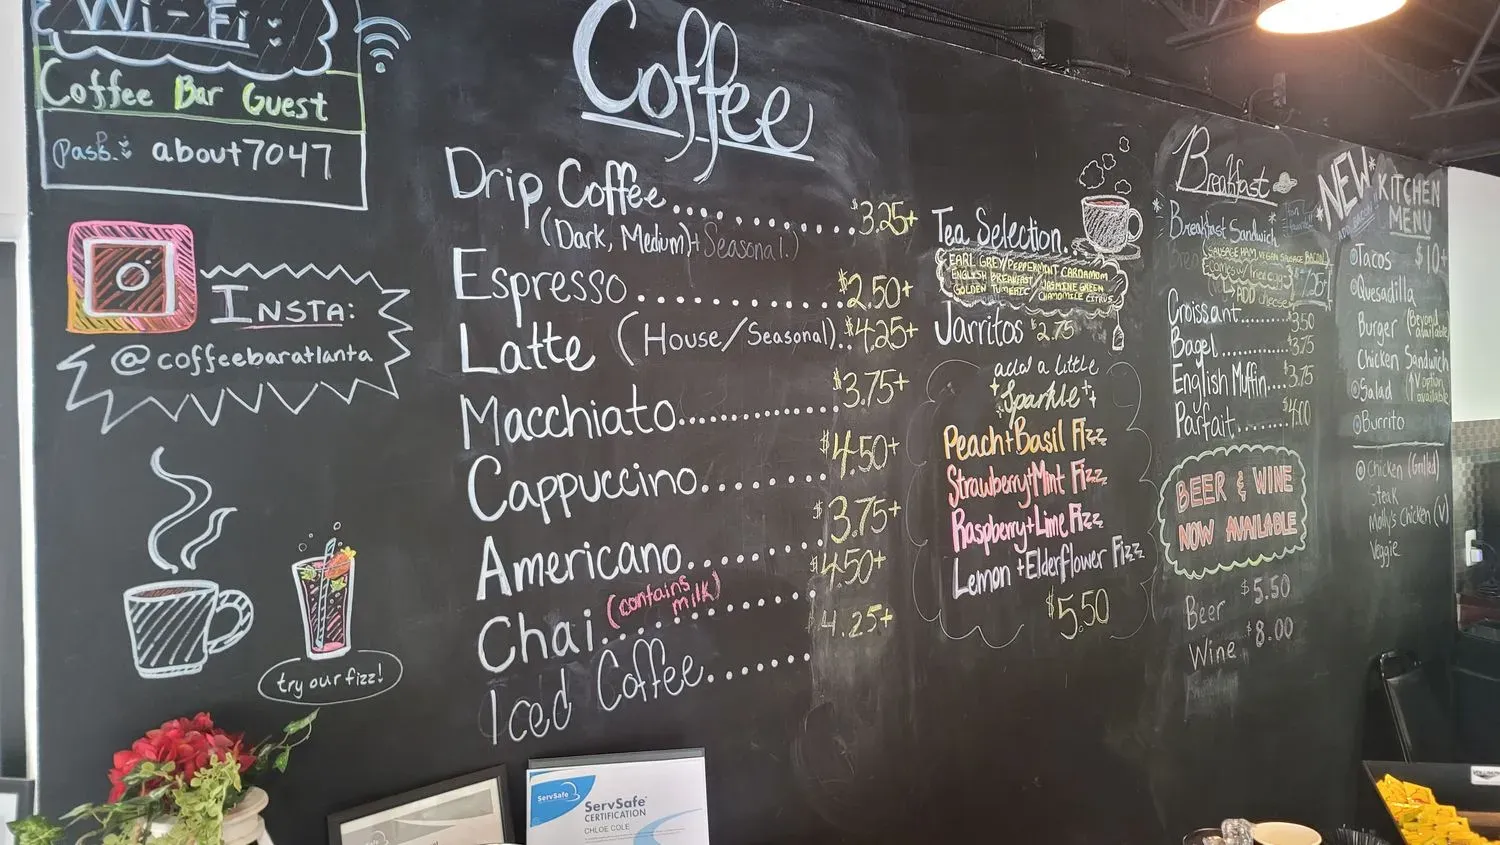 Wi-Fi:
Coffee Bar Guest
Pass: about7047
INSTA:
@coffeebaratlanta
try our fizz!
Coffee
Drip Coffee........$3.25+
(Dark, Medium)+Seasonal)
Espresso........$2.50+
Latte (House/Seasonal)..$4.25+
Macchiato........$3.75+
Cappuccino........$4.50+
Americano........$3.75+
Chai (contains milk)........$4.50+
Iced Coffee........$4.25+
Tea Selection...
EARL GREY/PEPPERMINT CARDAMOM
ENGLISH BREAKFAST/JASMINE GREEN
GOLDEN TUMERIC/CHAMOMILE CITRUS
Jarritos $2.75
add a little
Sparkle
Peach+Basil Fizz
Strawberry+Mint Fizz
Raspberry+Lime Fizz
Lemon+Elderflower Fizz
$5.50
Breakfast
Breakfast Sandwich
SAUSAGE HAM VEGAN SAUSAGE BACON
comes w/ fried egg
ADD cheese
Croissant........$3.50
Bagel........$3.75
English Muffin...$3.75
Parfait........$4.00
BEER & WINE
NOW AVAILABLE
Beer $5.50
Wine $8.00
NEW KITCHEN
MENU
Tacos $10+
Quesadilla
Burger (Beyond available)
Chicken Sandwich
Salad (V option available)
Burrito
Chicken (Grilled)
Steak
Molly's Chicken (V)
Veggie
ServSafe
ServSafe
CERTIFICATION
CHLOE COLE